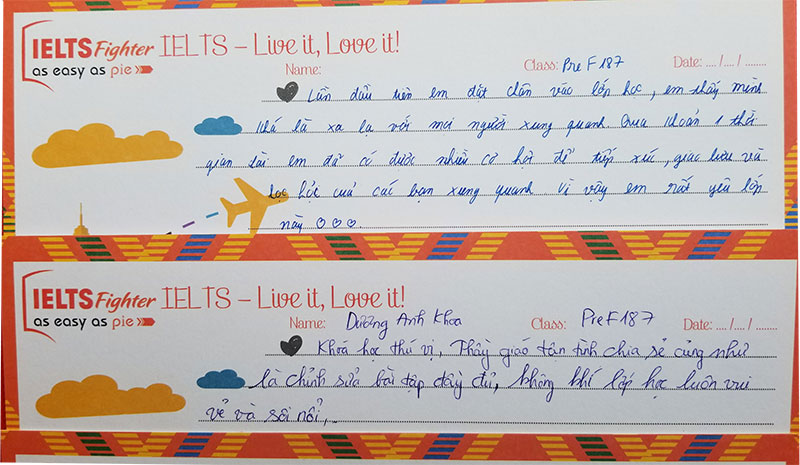 IELTS Fighter IELTS – Live it, Love it!
as easy as pie
Name: Class: Pre F187 Date: .../.../........
Lần đầu tiên em đặt chân vào lớp học, em thấy mình
khá là xa lạ với mọi người xung quanh. Qua khoản 1 thời
gian dài em đã có được nhiều cơ hội để tiếp xúc, giao lưu và
học hỏi cuả các bạn xung quanh vì vậy em rất yêu lớp
này ♡♡♡.
IELTS Fighter IELTS – Live it, Love it!
as easy as pie
Name: Dương Anh Khoa Class: Pre F187 Date: .../.../........
Khoá học thú vị, Thầy giáo tận tình chia sẻ cũng như
là chỉnh sửa bài tập đầy đủ, không khí lớp học luôn vui
vẻ và sôi nổi,..